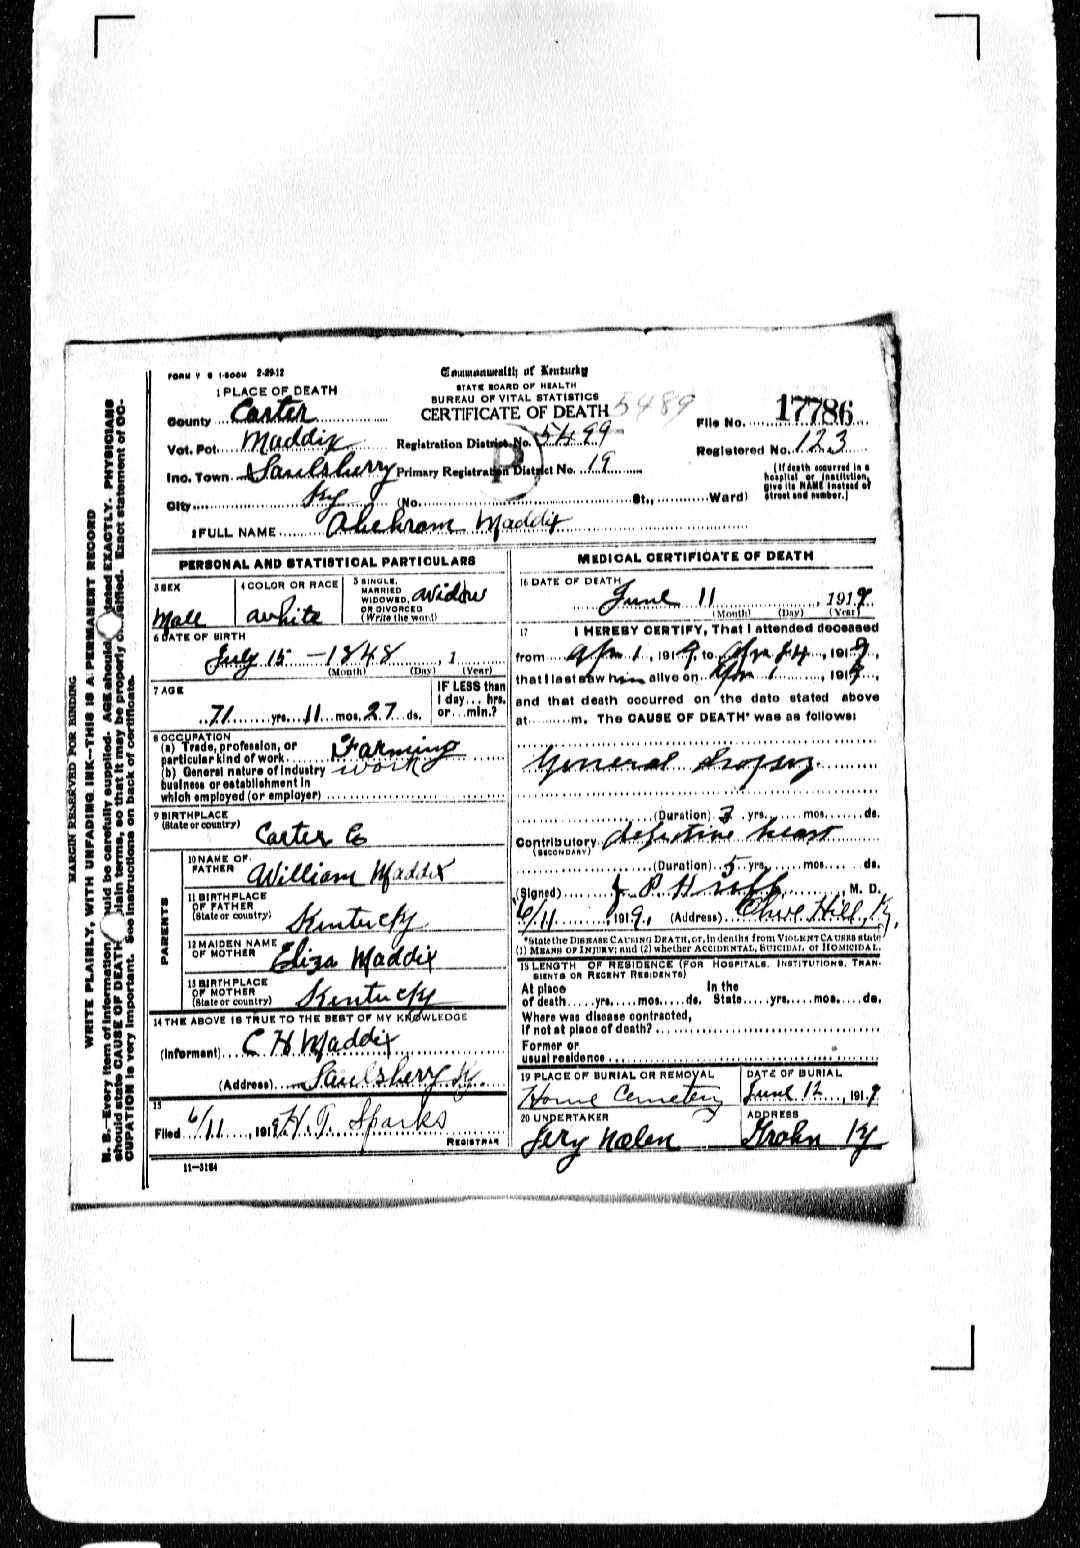 FORM V S 1-500M 2-29-12
Commonwealth of Kentucky
STATE BOARD OF HEALTH
BUREAU OF VITAL STATISTICS
CERTIFICATE OF DEATH 5489
1 PLACE OF DEATH
County Carter
File No. 17786
Vot. Pct. Maddix Registration District No. 5499
Registered No. 123
Inc. Town Saulsberry Primary Registration District No. 19
P
City Ky (No. St., Ward)
(If death occurred in a hospital or institution, give its NAME instead of street and number.)
2 FULL NAME Abehram Maddix
PERSONAL AND STATISTICAL PARTICULARS
3 SEX Male
4 COLOR OR RACE white
5 SINGLE, MARRIED WIDOWED, OR DIVORCED (Write the word) Widow
6 DATE OF BIRTH
July 15 - 1848 , 1
(Month) (Day) (Year)
7 AGE
71 yrs. 11 mos. 27 ds.
IF LESS than 1 day... hrs. or...min.?
8 OCCUPATION
(a) Trade, profession, or particular kind of work Farming
(b) General nature of industry work
business or establishment in
which employed (or employer)
9 BIRTHPLACE
(State or country) Carter Co
PARENTS
10 NAME OF FATHER William Maddix
11 BIRTHPLACE OF FATHER (State or country) Kentucky
12 MAIDEN NAME OF MOTHER Eliza Maddix
13 BIRTHPLACE OF MOTHER (State or country) Kentucky
14 THE ABOVE IS TRUE TO THE BEST OF MY KNOWLEDGE
(Informant) C H Maddix
(Address) Saulsberry K
15
Filed 6/11, 1919 H. T. Sparks
REGISTRAR
11-3184
MEDICAL CERTIFICATE OF DEATH
16 DATE OF DEATH
June 11, 1919
(Month) (Day) (Year)
17 I HEREBY CERTIFY, That I attended deceased
from Apr 1, 1919, to 1919,
that I last saw him alive on Apr 1, 1919,
and that death occurred on the date stated above
at m. The CAUSE OF DEATH* was as follows:
General Dropsy
(Duration) 3 yrs. mos. ds.
Contributory defective heart
(SECONDARY)
(Duration) 5 yrs. mos. ds.
(Signed) M. D.
6/11, 1919. (Address) Olive Hill, Ky.
*State the DISEASE CAUSING DEATH, or, in deaths from VIOLENT CAUSES state
(1) MEANS OF INJURY; and (2) whether ACCIDENTAL, SUICIDAL, or HOMICIDAL.
18 LENGTH OF RESIDENCE (FOR HOSPITALS, INSTITUTIONS, TRANSIENTS OR RECENT RESIDENTS)
At place In the
of death yrs. mos. ds. State yrs. mos. ds.
Where was disease contracted,
If not at place of death?
Former or
usual residence
19 PLACE OF BURIAL OR REMOVAL
Home Cemetery
DATE OF BURIAL
June 12, 1919
20 UNDERTAKER
Jery Nolen
ADDRESS
Grahn Ky
MARGIN RESERVED FOR BINDING
WRITE PLAINLY, WITH UNFADING INK—THIS IS A PERMANENT RECORD
N. B.—Every item of information should be carefully supplied. AGE should stated EXACTLY. PHYSICIANS
should state CAUSE OF DEATH plain terms, so that it may be properly classified. Exact statement of OC-
CUPATION is very important. See instructions on back of certificate.